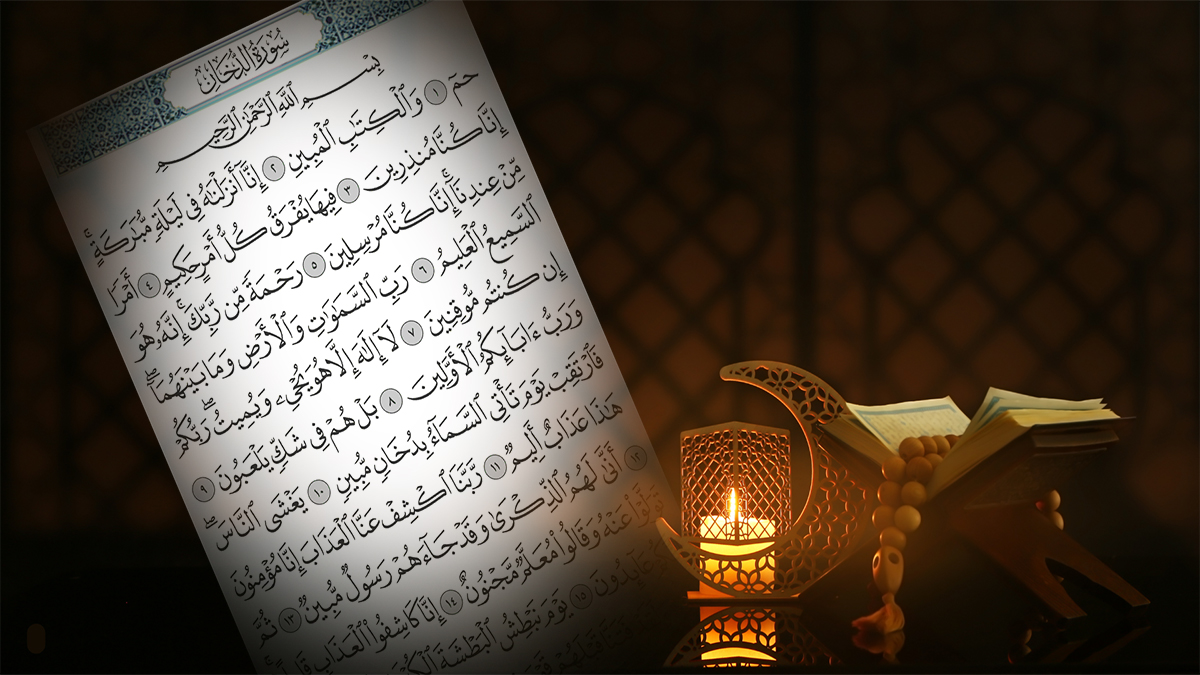 سُورَةُ الدُّخَانِ
بِسْمِ ٱللَّهِ ٱلرَّحْمَٰنِ ٱلرَّحِيمِ
حمٓ ١ وَٱلْكِتَٰبِ ٱلْمُبِينِ ٢ إِنَّآ أَنزَلْنَٰهُ فِى لَيْلَةٍ مُّبَٰرَكَةٍ ۚ
إِنَّا كُنَّا مُنذِرِينَ ٣ فِيهَا يُفْرَقُ كُلُّ أَمْرٍ حَكِيمٍ ٤ أَمْرًا
مِّنْ عِندِنَآ ۚ إِنَّا كُنَّا مُرْسِلِينَ ٥ رَحْمَةً مِّن رَّبِّكَ ۚ إِنَّهُۥ هُوَ
ٱلسَّمِيعُ ٱلْعَلِيمُ ٦ رَبِّ ٱلسَّمَٰوَٰتِ وَٱلْأَرْضِ وَمَا بَيْنَهُمَآ ۖ
إِن كُنتُم مُّوقِنِينَ ٧ لَآ إِلَٰهَ إِلَّا هُوَ يُحْىِۦ وَيُمِيتُ ۖ رَبُّكُمْ
وَرَبُّ ءَابَآئِكُمُ ٱلْأَوَّلِينَ ٨ بَلْ هُمْ فِى شَكٍّ يَلْعَبُونَ ٩
فَٱرْتَقِبْ يَوْمَ تَأْتِى ٱلسَّمَآءُ بِدُخَانٍ مُّبِينٍ ١٠ يَغْشَى ٱلنَّاسَ ۖ
هَٰذَا عَذَابٌ أَلِيمٌ ١١ رَّبَّنَا ٱكْشِفْ عَنَّا ٱلْعَذَابَ إِنَّا مُؤْمِنُونَ
١٢ أَنَّىٰ لَهُمُ ٱلذِّكْرَىٰ وَقَدْ جَآءَهُمْ رَسُولٌ مُّبِينٌ ١٣ ثُمَّ
تَوَلَّوْا۟ عَنْهُ وَقَالُوا۟ مُعَلَّمٌ مَّجْنُونٌ ١٤ إِنَّا كَاشِفُوا۟ ٱلْعَذَابِ
عَآئِدُونَ ١٥ يَوْمَ نَبْطِشُ ٱلْبَطْشَةَ